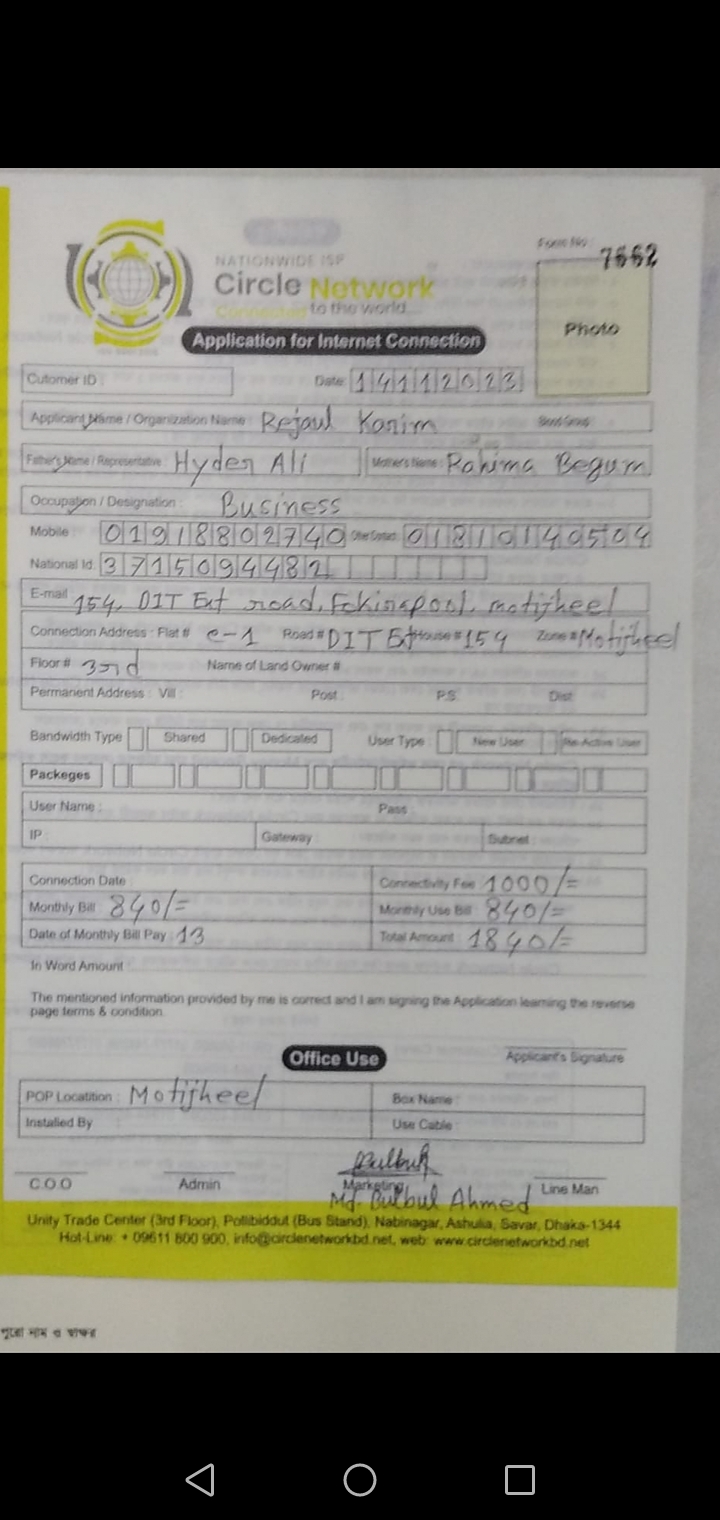 Form No : 7662
NATIONWIDE ISP
Circle Network
Connected to the world...
Photo
Application for Internet Connection
Cutomer ID : Date: 14112023
Applicant Name / Organization Name Rejaul Karim Blood Group
Father's Name / Representative: Hyder Ali Mother's Name : Rahima Begum
Occupation / Designation : Business
Mobile : 01918802740 Other Contact: 01810140504
National Id. 3715094482
E-mail 154, DIT Ext road, Fokirapool, motijheel
Connection Address : Flat # c-1 Road # DIT Ext House # 154 Zone # Motijheel
Floor # 3rd Name of Land Owner #
Permanent Address : Vill : Post : P.S: Dist:
Bandwidth Type Shared Dedicated User Type : New User Re-Active User
Packeges
User Name : Pass
IP : Gateway Subnet :
Connection Date : Connectivity Fee 1000/=
Monthly Bill 840/= Monthly Use Bill 840/=
Date of Monthly Bill Pay : 13 Total Amount : 1840/=
In Word Amount
The mentioned information provided by me is correct and I am signing the Application learning the reverse
page terms & condition.
Office Use Applicant's Signature
POP Locatition : Motijheel Box Name :
Installed By Use Cable :
Bulbul
C.O.O Admin Marketing Line Man
Md. Bulbul Ahmed
Unity Trade Center (3rd Floor), Pollibiddut (Bus Stand), Nabinagar, Ashulia, Savar, Dhaka-1344
Hot-Line: + 09611 800 900, info@circlenetworkbd.net, web: www.circlenetworkbd.net
পুরো নাম ও স্বাক্ষর